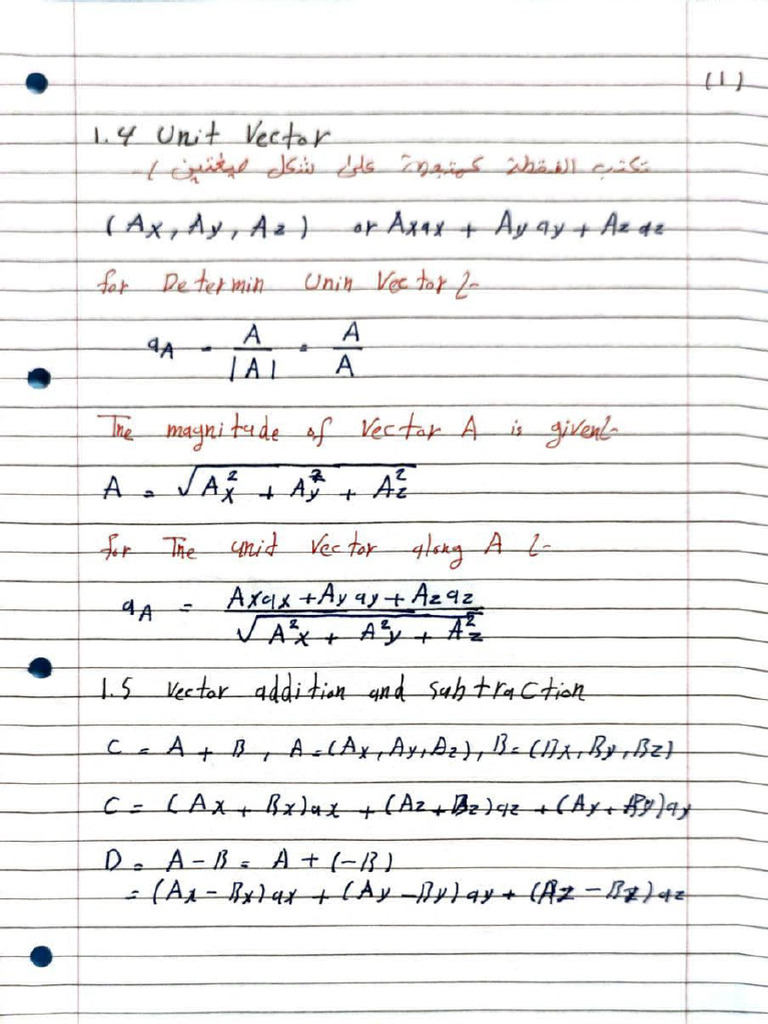 (1)
1.4 Unit Vector
تكتب النقطة كمتجهة على شكل صيغتين :-
(Ax, Ay, Az) or Axax + Ayay + Azaz
for Determin Unin Vector :-
aA = A/|A| = A/A
The magnitude of Vector A is given :-
A = √(Ax² + Ay² + Az²)
for The unit Vector along A :-
aA = (Axax + Ayay + Azaz)/√(A²x + A²y + Az²)
1.5 Vector addition and subtraction
C = A + B, A = (Ax, Ay, Az), B = (Bx, By, Bz)
C = (Ax + Bx)ax + (Az + Bz)az + (Ay + By)ay
D = A - B = A + (-B)
= (Ax - Bx)ax + (Ay - By)ay + (Az - Bz)az